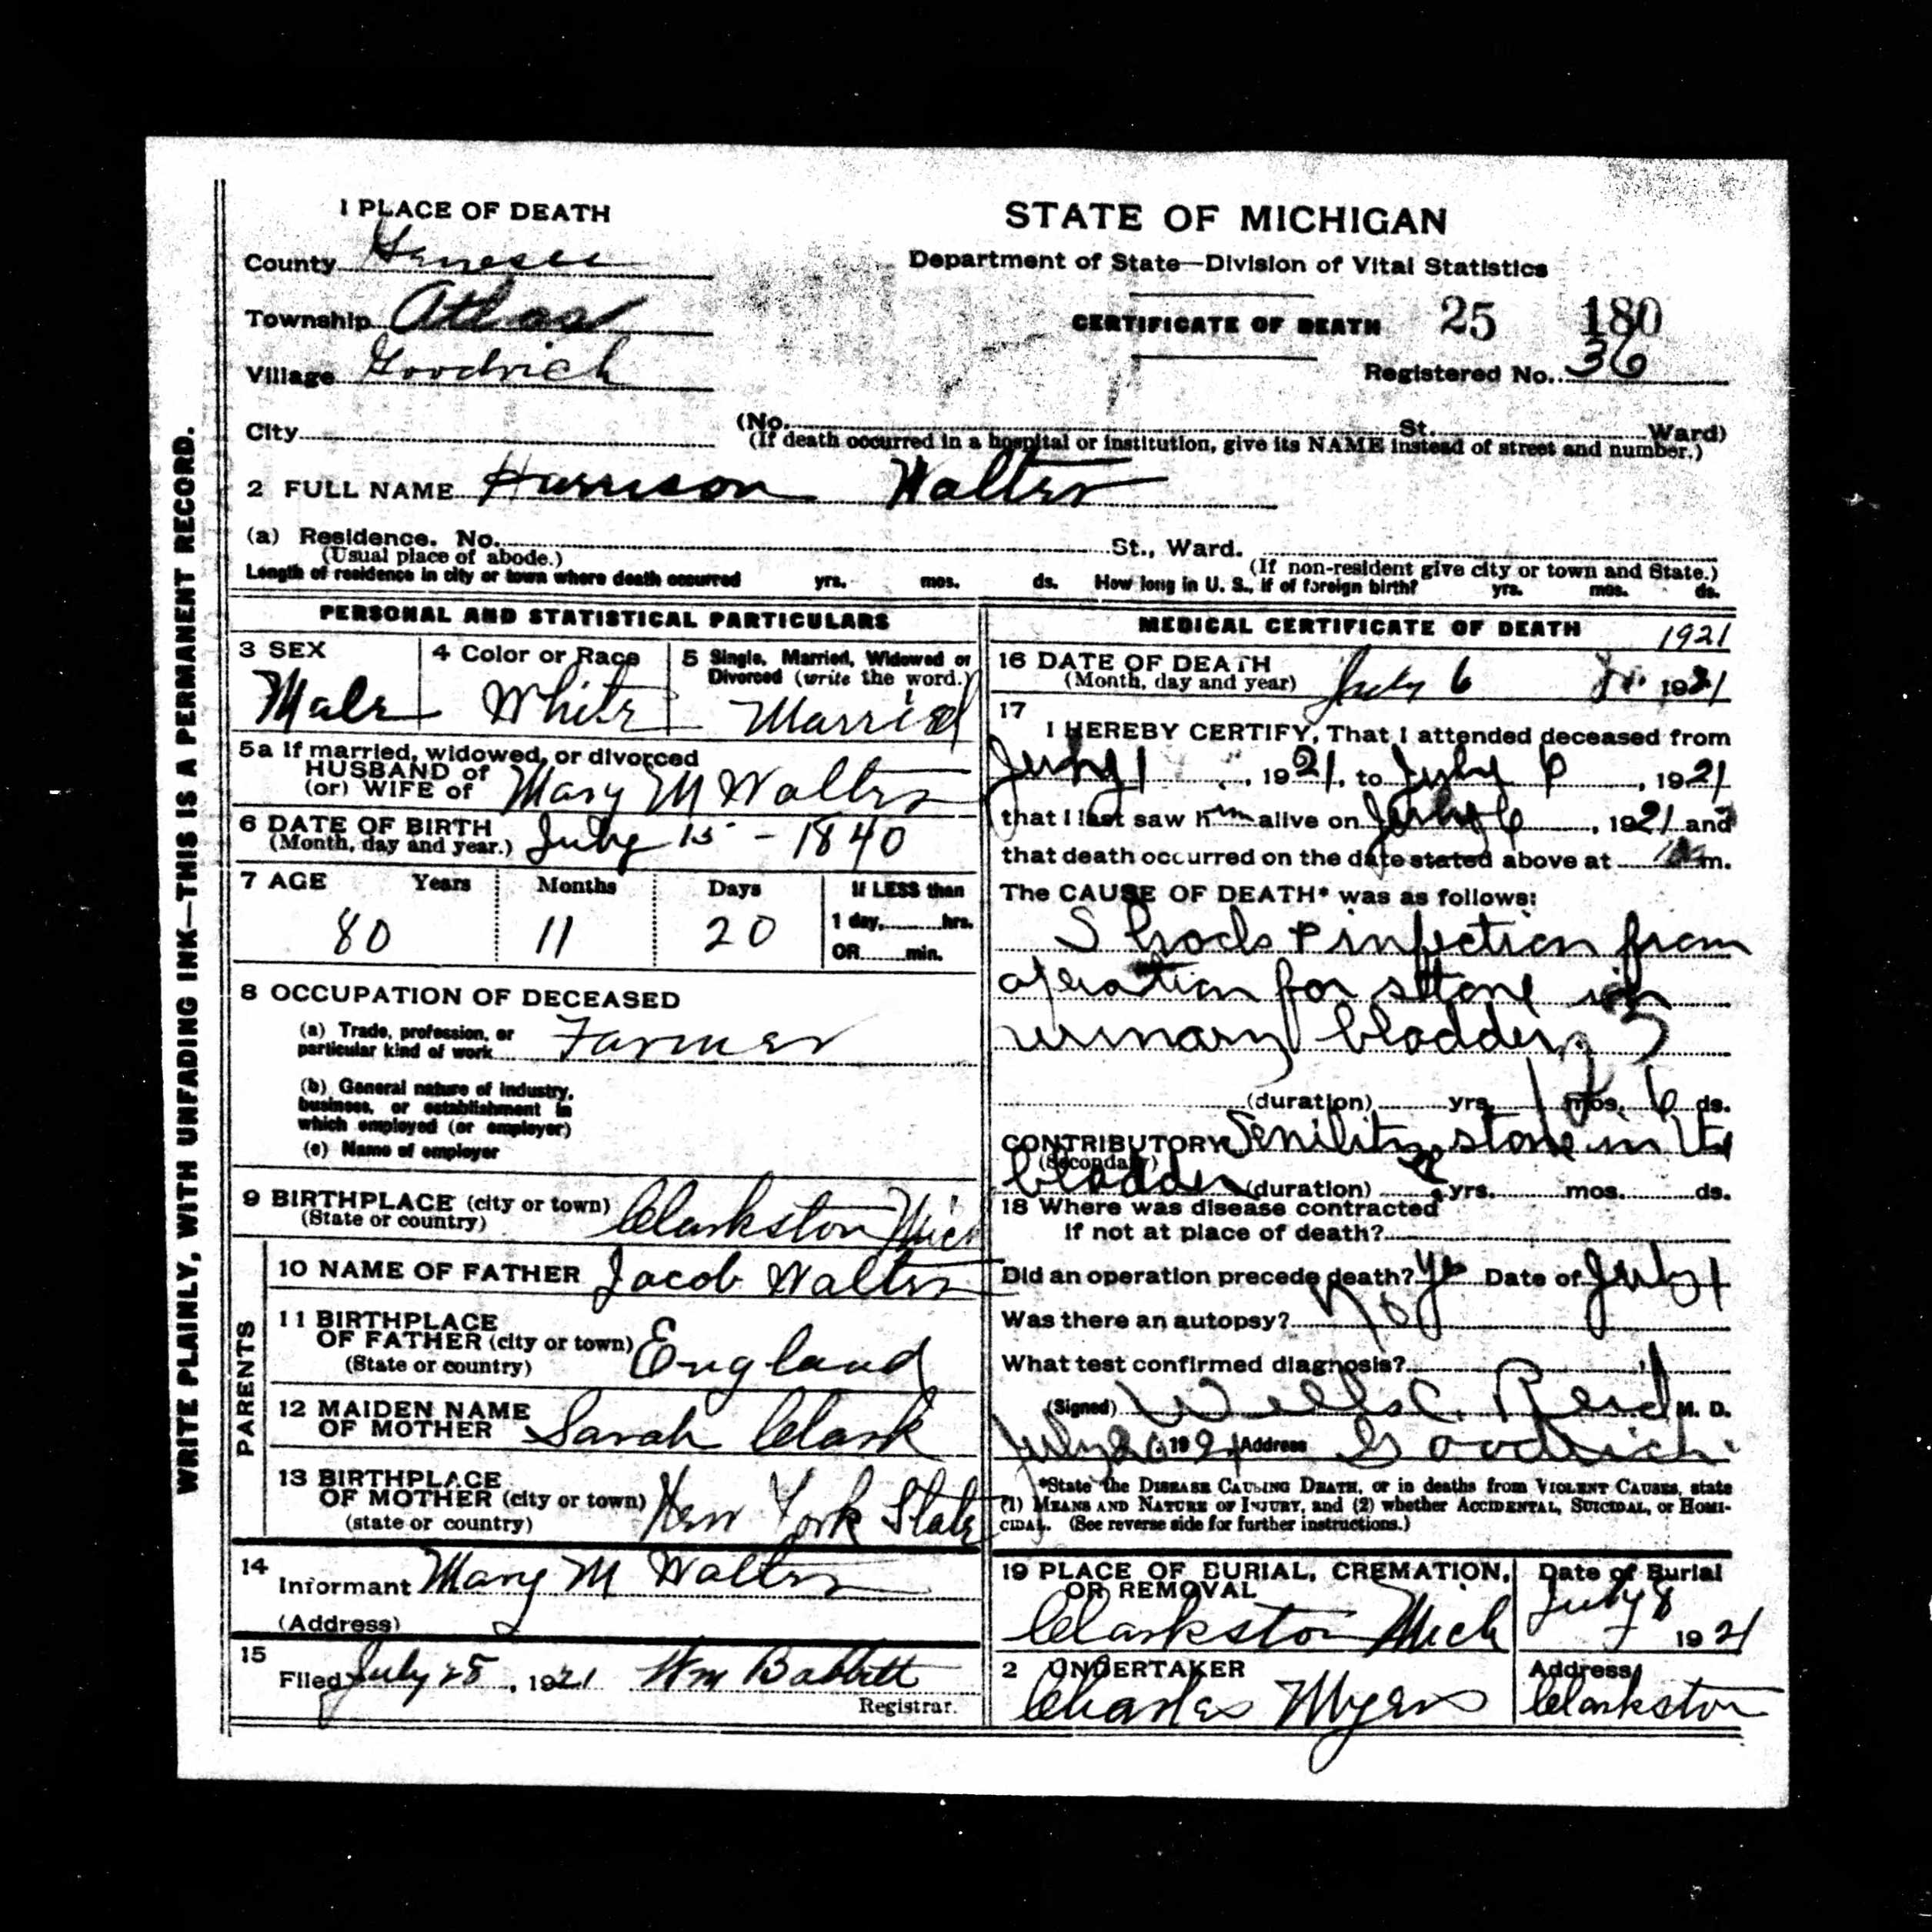 1 PLACE OF DEATH
County Genesee
Township Atlas
Village Goodrich
City
STATE OF MICHIGAN
Department of State—Division of Vital Statistics
CERTIFICATE OF DEATH 25 180
Registered No. 36
(No. St. Ward)
(If death occurred in a hospital or institution, give its NAME instead of street and number.)
2 FULL NAME Harrison Walter
(a) Residence. No. St., Ward.
(Usual place of abode.) (If non-resident give city or town and State.)
Length of residence in city or town where death occurred yrs. mos. ds. How long in U. S., if of foreign birth? yrs. mos. ds.
WRITE PLAINLY, WITH UNFADING INK—THIS IS A PERMANENT RECORD.
PERSONAL AND STATISTICAL PARTICULARS
3 SEX
Male
4 Color or Race
White
5 Single, Married, Widowed or
Divorced (write the word.)
Married
5a If married, widowed, or divorced
HUSBAND of
(or) WIFE of Mary M Walter
6 DATE OF BIRTH
(Month, day and year.) July 15 - 1840
7 AGE Years Months Days If LESS than
1 day, hrs.
80 11 20
OR min.
8 OCCUPATION OF DECEASED
(a) Trade, profession, or
particular kind of work Farmer
(b) General nature of industry,
business, or establishment in
which employed (or employer)
(c) Name of employer
9 BIRTHPLACE (city or town)
(State or country) Clarkston Mich
PARENTS
10 NAME OF FATHER Jacob Walter
11 BIRTHPLACE
OF FATHER (city or town)
(State or country) England
12 MAIDEN NAME
OF MOTHER Sarah Clark
13 BIRTHPLACE
OF MOTHER (city or town)
(state or country) New York State
14
Informant Mary M Walter
(Address)
15
Filed July 25, 1921 Wm Babbitt
Registrar.
MEDICAL CERTIFICATE OF DEATH 1921
16 DATE OF DEATH
(Month, day and year) July 6 1921
17
I HEREBY CERTIFY, That I attended deceased from
July 1, 1921, to July 6, 1921
that I last saw him alive on July 6, 1921 and
that death occurred on the date stated above at m.
The CAUSE OF DEATH* was as follows:
Shock & infection from
operation for stone in
urinary bladder
(duration) yrs. mos. 6 ds.
CONTRIBUTORY Senility stone in the
(Secondary)
bladder (duration) 2 yrs. mos. ds.
18 Where was disease contracted
if not at place of death?
Did an operation precede death? Yes Date of July 1
Was there an autopsy? No
What test confirmed diagnosis?
(Signed) Wells C. Reid M. D.
July 1921 Address Goodrich
*State the DISEASE CAUSING DEATH, or in deaths from VIOLENT CAUSES, state
(1) MEANS AND NATURE OF INJURY, and (2) whether ACCIDENTAL, SUICIDAL, or HOMI-
CIDAL. (See reverse side for further instructions.)
19 PLACE OF BURIAL, CREMATION,
OR REMOVAL
Clarkston Mich
Date of Burial
July 8
1921
2 UNDERTAKER
Charles Myers
Address
Clarkston